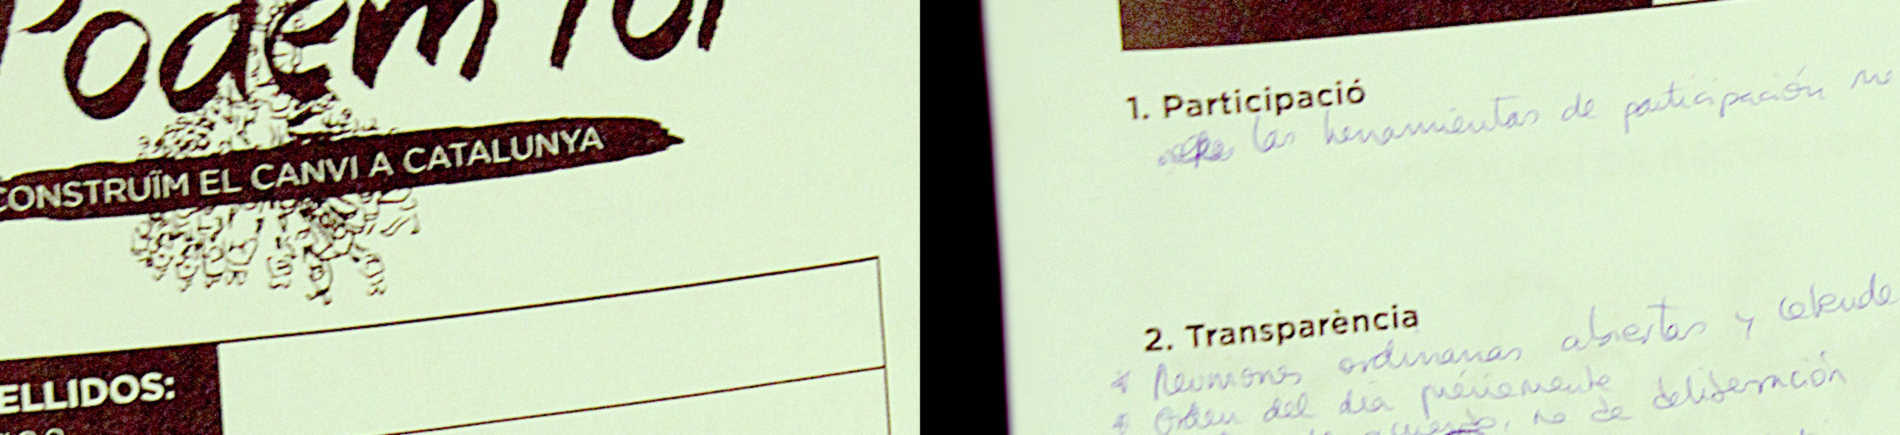 Podem
CONSTRUÏM EL CANVI A CATALUNYA
ELLIDOS:
1. Participació
las herramientas de participación
2. Transparència
* Reuniones ordinarias abiertas y
* Orden del día previamente
, no de deliberación